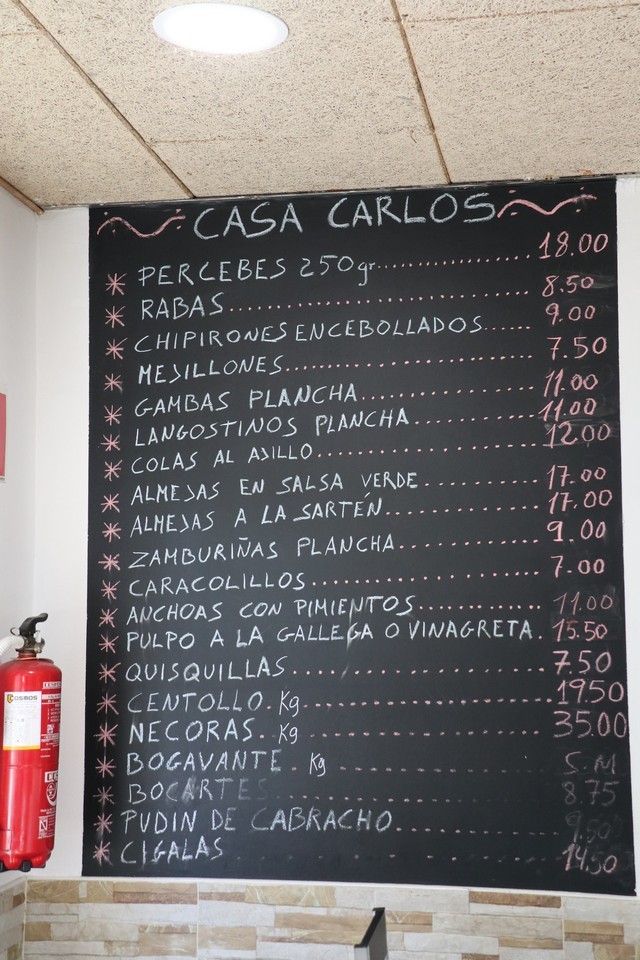 CASA CARLOS
PERCEBES 250gr 18.00
RABAS 8.50
CHIPIRONES ENCEBOLLADOS 9.00
MEJILLONES 7.50
GAMBAS PLANCHA 11.00
LANGOSTINOS PLANCHA 11.00
COLAS AL AJILLO 12.00
ALMEJAS EN SALSA VERDE 17.00
ALMEJAS A LA SARTÉN 17.00
ZAMBURIÑAS PLANCHA 9.00
CARACOLILLOS 7.00
ANCHOAS CON PIMIENTOS 11.00
PULPO A LA GALLEGA O VINAGRETA 15.50
QUISQUILLAS 7.50
CENTOLLO Kg 19.50
NECORAS Kg 35.00
BOGAVANTE Kg S.M
BOCARTES 8.75
PUDIN DE CABRACHO 9.50
CIGALAS 14.50
COSMOS